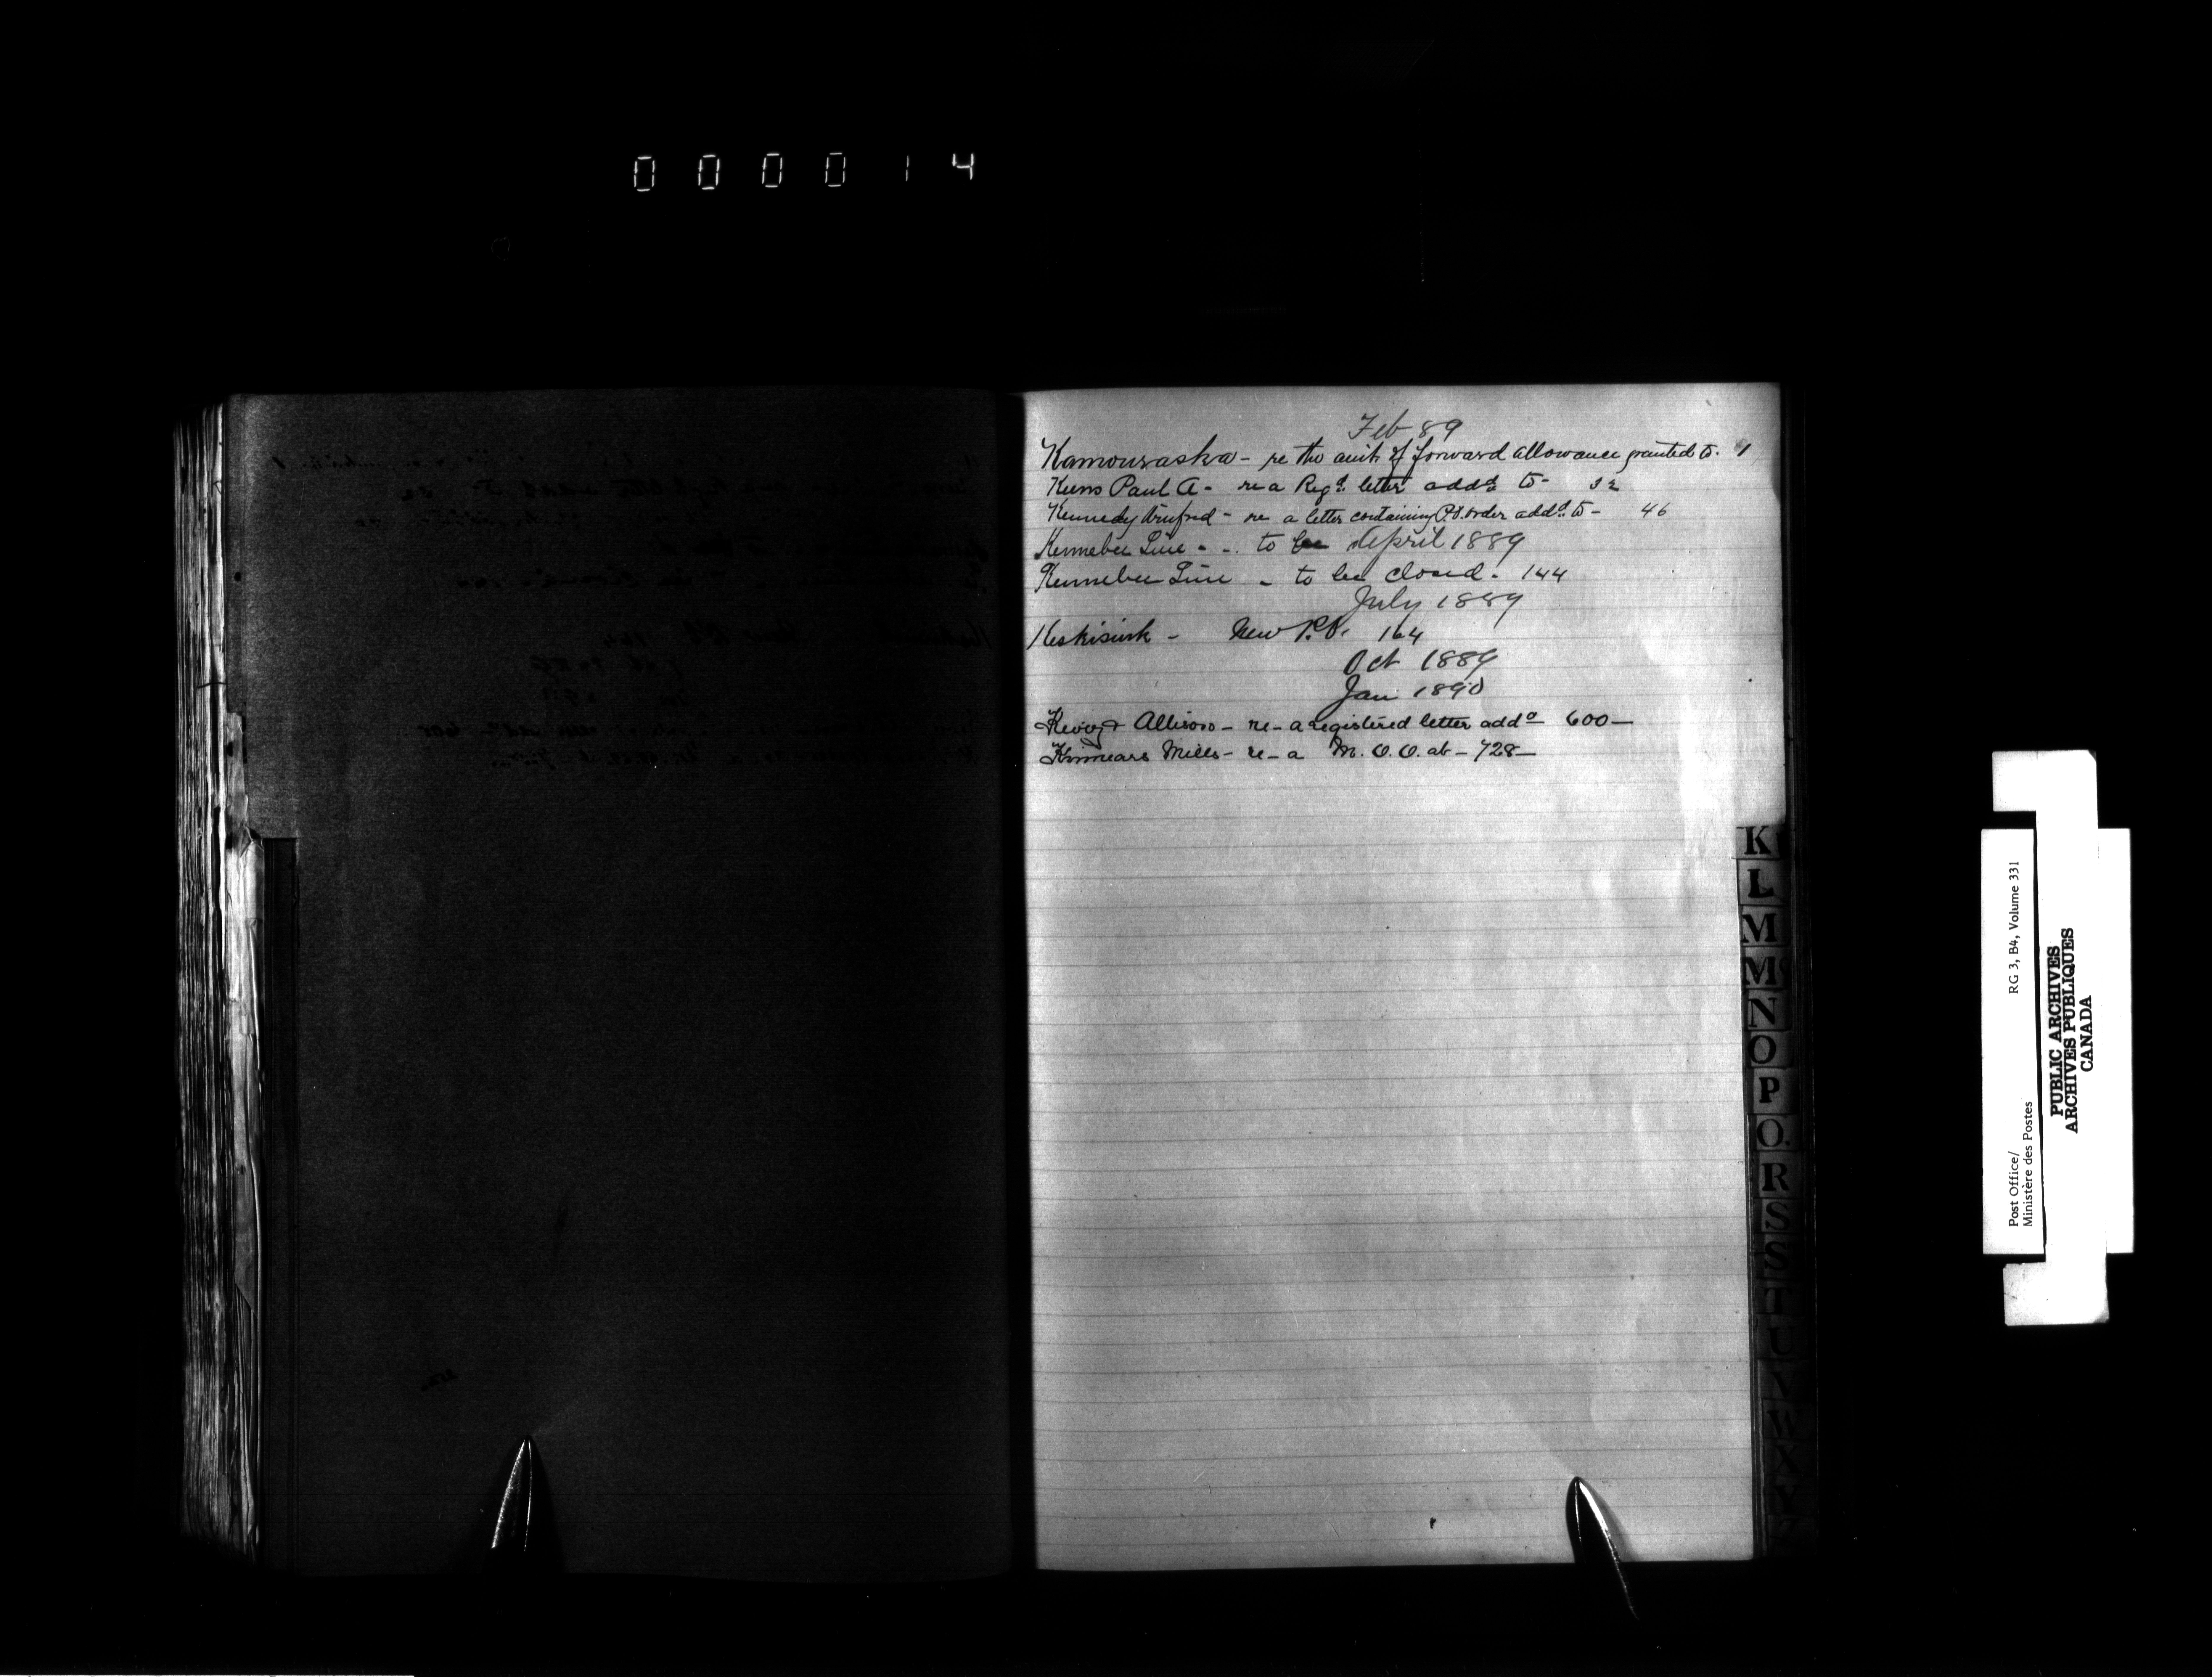 000014
Feb 89
Kamouraska - re the amt of forward allowance granted to. 1
Paul A - re a Regd. letter addd to - 32
Kennedy - re a letter containing P.O. order addd. to - 46
Kennebec Line - - to be April 1889
Kennebec Line - to be closed. 144
July 1889
Keskisink - New P.O. 164
Oct 1889
Jan 1890
Allison - re - a registered letter addd 600 -
Kinnears Mills - re - a M.O.O. at - 728 -
K
L
M
Mc
N
O
P
Q.
R
S
S
T
U
V
W
X
Y
Z
Post Office/ RG 3, B4, Volume 331
Ministère des Postes
PUBLIC ARCHIVES
ARCHIVES PUBLIQUES
CANADA